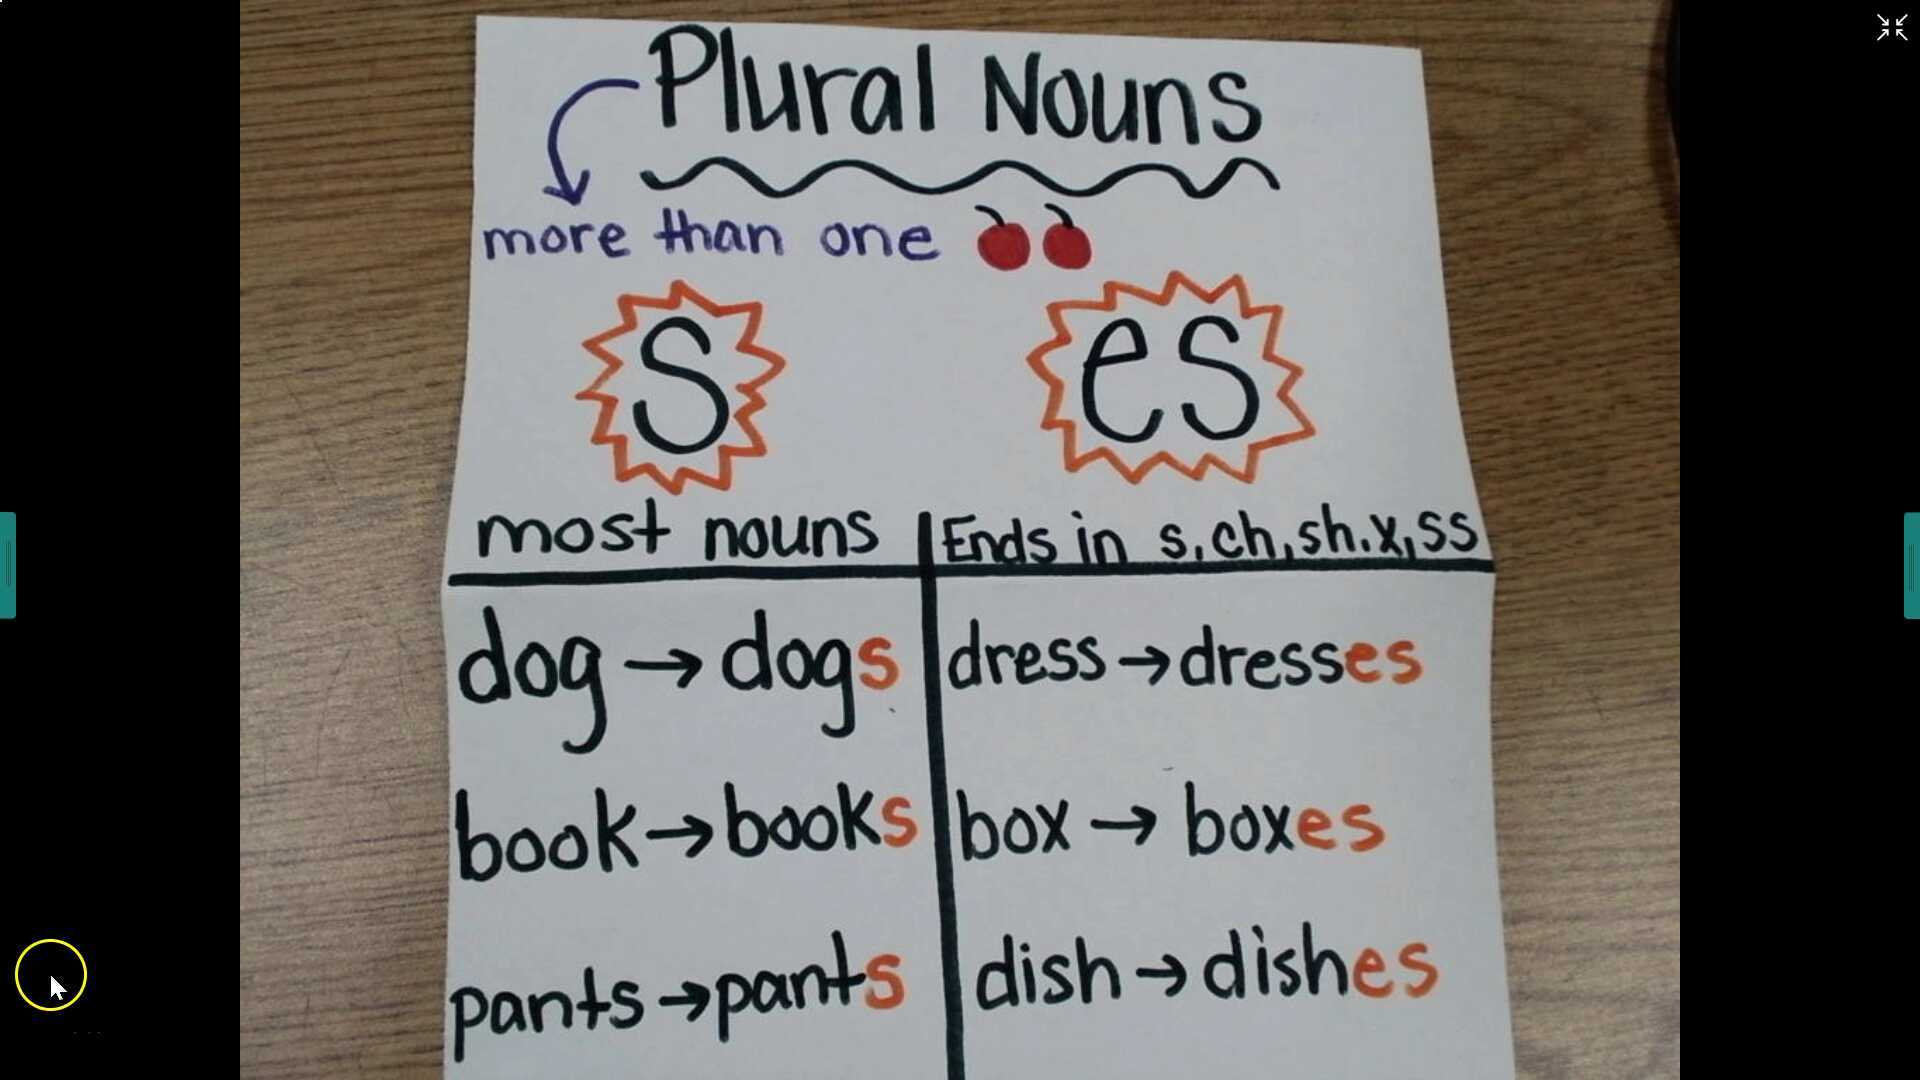 Plural Nouns
more than one
s es
most nouns Ends in s, ch, sh. x, ss
dog → dogs dress → dresses
book → books box → boxes
pants → pants dish → dishes